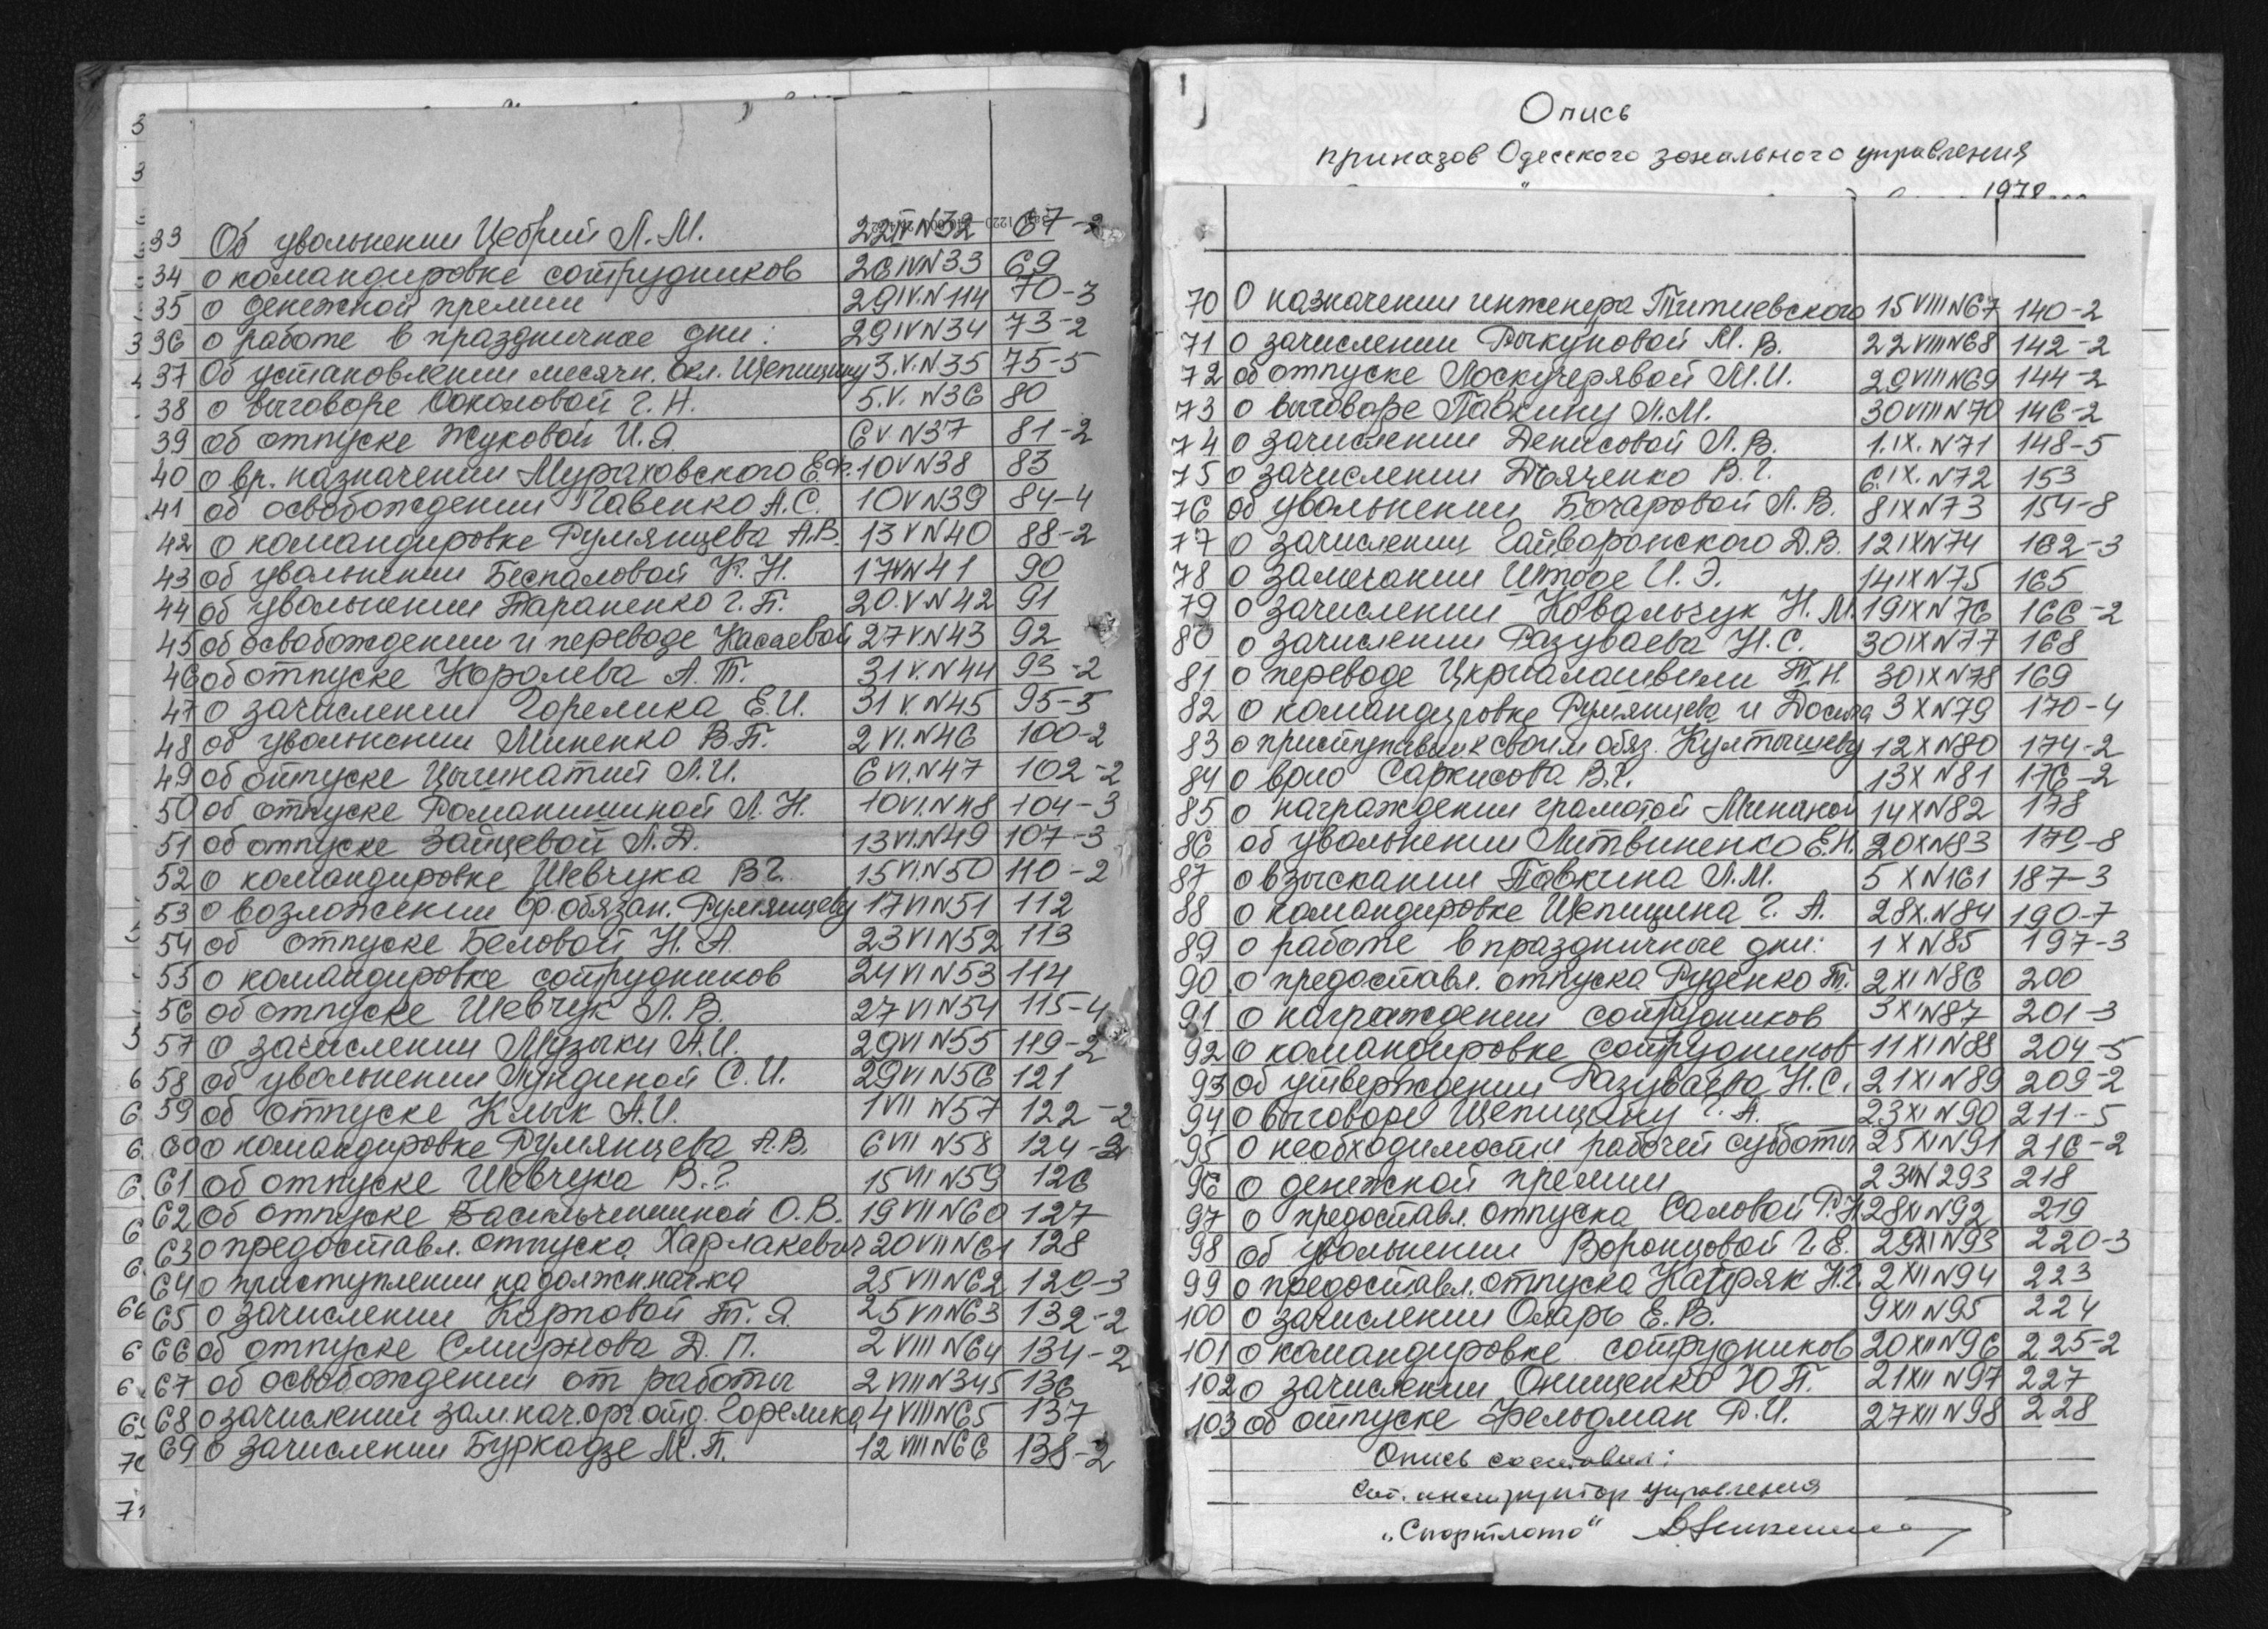 33 Об увольнении Цебрий Л.М. 22 IV N32 67-2
34 о командировке сотрудников 26 IV N33 69
35 о денежной премии 29 IV. N 114 70-3
36 о работе в праздничные дни: 29 IV N34 73-2
37 Об установлении месячн. окл. Щепицину 3.V. N35 75-5
38 о выговоре Соколовой Г.Н. 5.V. N36 80
39 об отпуске Жуковой И.Я. 6 V N37 81-2
40 о вр. назначении Мураховского Е.Ф. 10 V N38 83
41 об освобождении Гавенко А.С. 10 V N39 84-4
42 о командировке Румянцева А.В. 13 V N40 88-2
43 об увольнении Беспаловой К.Н. 17 V N41 90
44 об увольнении Тараненко Г.П. 20.V. N 42 91
45 об освобождении и переводе Касаевой 27 V. N43 92
46 об отпуске Королева А.Т. 31 V. N44 93-2
47 о зачислении Горелика Е.И. 31 V. N45 95-5
48 об увольнении Миненко В.П. 2 VI. N46 100-2
49 об отпуске Цычинатий Л.И. 6 VI. N47 102-2
50 об отпуске Романишиной Л.Н. 10 VI. N48 104-3
51 об отпуске Зайцевой Л.Д. 13 VI. N49 107-3
52 о командировке Шевчука В.Г. 15 VI. N50 110-2
53 о возложении ф. обязан. Румянцеву 17 VI N51 112
54 об отпуске Беловой Н.А. 23 VI N52 113
55 о командировке сотрудников 24 VI N53 114
56 об отпуске Шевчук Л.В. 27 VI N54 115-4
57 о зачислении Музыки А.И. 29 VI N55 119-2
58 об увольнении Лундиной С.И. 29 VI N56 121
59 об отпуске Клык А.И. 1 VII N57 122-2
60 о командировке Румянцева А.В. 6 VII N58 124-2
61 об отпуске Шевчука В.Г. 15 VII N59 126
62 об отпуске Васильчишиной О.В. 19 VII N60 127
63 о предоставл. отпуска Харлакевич 20 VII N61 128
64 о приступлении на должн. нач-ка 25 VII N62 129-3
65 о зачислении Карповой Т.Я. 25 VII N63 132-2
66 об отпуске Смирнова Д.П. 2 VIII N64 134-2
67 об освобождении от работы 2 VIII N345 136
68 о зачислении зам. нач. орг. отд. Горелика 4 VIII N65 137
69 о зачислении Буркадзе М.П. 12 VIII N66 138-2
Опись
приказов Одесского зонального управления
1978
70 О назначении инженера Титиевского 15 VIII N67 140-2
71 о зачислении Рыкуновой М.В. 22 VIII N68 142-2
72 об отпуске Лоскучерявой М.И. 29 VIII N69 144-2
73 о выговоре Павкину Л.М. 30 VIII N70 146-2
74 о зачислении Денисовой Л.В. 1.IX. N71 148-5
75 о зачислении Дьяченко В.Г. 6.IX. N72 153
76 об увольнении Бочаровой Л.В. 8 IX N73 154-8
77 о зачислении Гайворонского Д.В. 12 IX N74 162-3
78 о замечании Штоде И.Э. 14 IX N75 165
79 о зачислении Ковальчук Н.М. 19 IX N76 166-2
80 о зачислении Разуваева Н.С. 30 IX N77 168
81 о переводе Цкриалашвили Т.Н. 30 IX N78 169
82 о командировке Румянцева и 3 X N79 170-4
83 о приступившем к своим обяз. Култышеву 12 X N80 174-2
84 о врио Саркисова В.Г. 13 X N81 176-2
85 о награждении грамотой Мининой 14 X N82 178
86 об увольнении Литвиненко Е.Н. 20 X N83 179-8
87 о взыскании Павкина Л.М. 5 X N161 187-3
88 о командировке Щепицина Г.А. 28 X. N84 190-7
89 о работе в праздничные дни: 1 X N85 197-3
90 о предоставл. отпуска Руденко Т. 2 XI N86 200
91 о награждении сотрудников 3 XI N87 201-3
92 о командировке сотрудников 11 XI N88 204-5
93 об утверждении Разуваева Н.С. 21 XI N89 209-2
94 о выговоре Щепицину Г.А. 23 XI N90 211-5
95 о необходимости рабочей субботы 25 XI N91 216-2
96 о денежной премии 23 XI N293 218
97 о предоставл. отпуска Саловой Р.Н. 28 XI N92 219
98 об увольнении Воронцовой Г.Е. 29 XI N93 220-3
99 о предоставл. отпуска Кайряк Н.Г. 2 XII N94 223
100 о зачислении Оларь Е.В. 9 XII N95 224
101 о командировке сотрудников 20 XII N96 225-2
102 о зачислении Онищенко Ю.П. 21 XII N97 227
103 об отпуске Фельдман Р.И. 27 XII N98 228
Опись составил:
Ст. инструктор управления
„Спортлото"